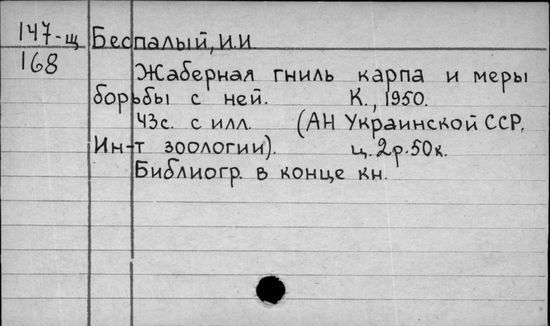 147-щ Беспалый, И.И.
168
Жаберная гниль карпа и меры
борьбы с ней. К., 1950.
43с. с илл. (АН Украинской ССР.
Ин-т зоологии). ц. 2р. 50к.
Библиогр. в конце кн.